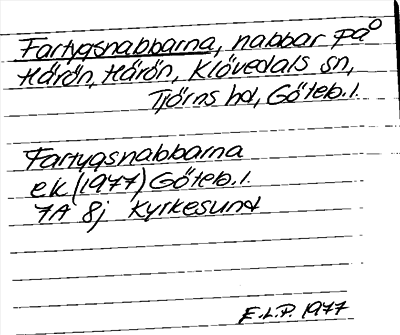 Fartygsnabbarna, nabbar på
Härön, Härön, Klövedals sn,
Tjörns hd, Göteb.l.
Fartygsnabbarna
ek (1977) Göteb.l.
7A 8j Kyrkesund
E.L.P. 1977